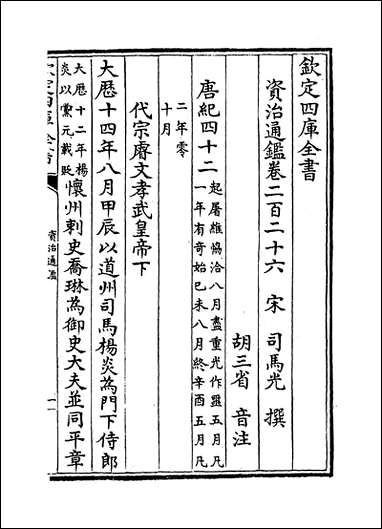 欽定四庫全書
資治通鑑卷二百二十六　宋　司馬光　撰
胡三省　音注
唐紀四十二起屠維協洽八月盡重光作噩五月凡
一年有奇始巳未八月終辛酉五月凡
二年零
十月
代宗睿文孝武皇帝下
大厯十四年八月甲辰以道州司馬楊炎為門下侍郎
大厯十二年楊
炎以黨元載貶懷州刺史喬琳為御史大夫並同平章
欽定四庫全書
資治通鑑
一